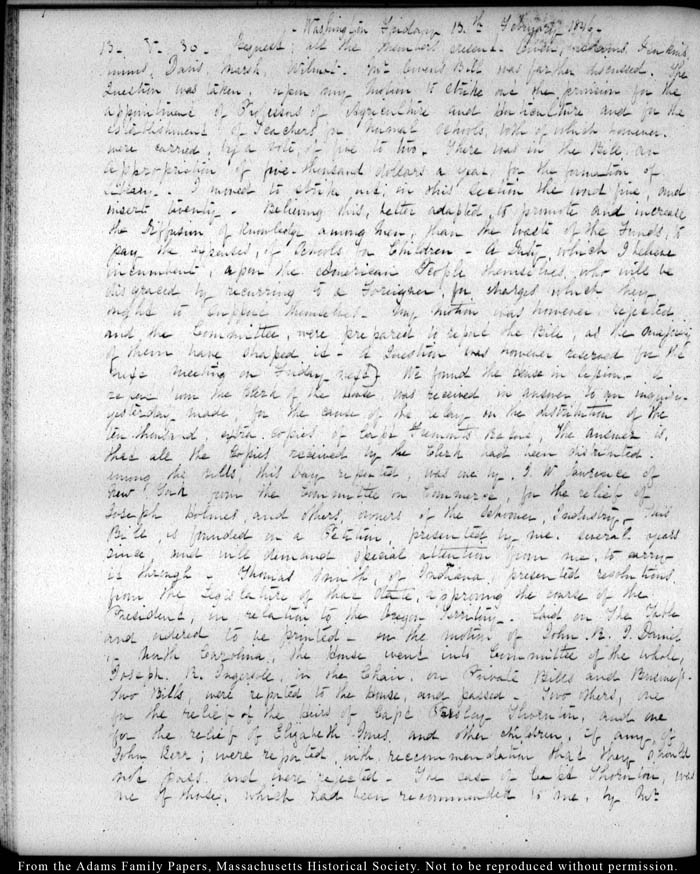 Washington Friday 13.th February 1846.
13. V. 30. Request; all the members present Owen, Jenkins,
Sims, Davis, Marsh, Wilmot. Mr Owen's Bill was further discussed. The
Question was taken, upon my motion to strike out the provision for the
appointment of Professors of Agriculture and Horticulture and for the
establishment of Teachers for Normal Schools, both of which however.
were carried, by a vote, of five to two. There was in the Bill, an
Appropriation of five thousand dollars a year, for the formation of
Library. I moved to strike out, in this section the word five, and
insert twenty. Believing this, better adapted, to promote and increase
the diffusion of knowledge among men, than the waste of the Funds, to
pay the expenses, of Schools for Children - A Duty, which I believe
incumbent, upon the American People themselves, who will be
disgraced by recurring to a Foreigner, for charges which they
ought to support themselves. My motion was however rejected
and the Committee, were prepared to report the Bill, as the majority
of them have shaped it. A Question was however reserved for the
next meeting on Friday next} We found the House in session. A
report from the Clerk of the House, was received in answer to an inquiry
yesterday made, for the cause of the delay in the distribution of the
ten thousand extra copies, of Capt Fremont's Report, the answer is,
that all the Copies received by the Clerk had been distributed.
among the bills, this day reported, was one by J. W Lawrence of
New York from the Committee on Commerce, for the relief of
Joseph Holmes, and others, owners of the schooner, Industry. This
Bill, is founded on a Petition, presented by me. several years
since and will demand special attention from me, to carry
it through. Thomas Smith, of Indiana, presented resolutions
from the Legislature of that State, approving the course of the
President, in relation to the Oregon Territory. Laid on the Table
and ordered to be printed. On the motion of John. R. J. Daniel
North Carolina, the House went into Committee of the whole,
Joseph. R. Ingersoll, in the Chair. on Private Bills and Business.
Two Bills, were reported to the House, and passed. Two others, one
for the relief of the heirs of Capt Presley Thornton, and one
for the relief of Elizabeth Jones, and other children, if any, of
John Kerr; were reported, with, reccommendation that they should
not pass. and were rejected. The case of Capt Thornton, was
one of those, which had been recommended to me, by Mr
From the Adams Family Papers, Massachusetts Historical Society. Not to be reproduced without permission.